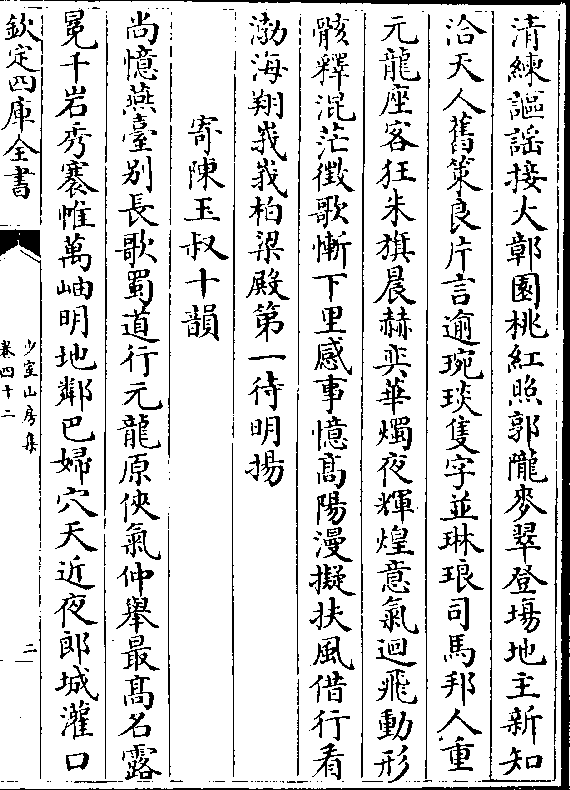 清練謳謡接大鄣園桃紅照郭隴麥翠登塲地主新知
洽天人舊策良片言逾琬琰隻字並琳琅司馬邦人重
元龍座客狂朱旗晨赫奕華燭夜輝煌意氣迴飛動形
骸釋混茫徴歌慚下里感事憶髙陽漫擬扶風借行看
渤海翔峩峩柏梁殿第一待明揚
寄陳玉叔十韻
尚憶燕臺别長歌蜀道行元龍原俠氣仲舉最髙名露
冕千岩秀褰帷萬岫明地鄰巴婦穴天近夜郎城灌口
欽定四庫全書
少室山房集
卷四十二
二